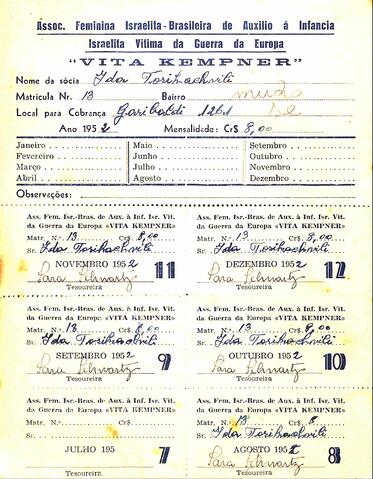 Assoc. Feminina Israelita-Brasileira de Auxilio á Infancia
Israelita Vitima da Guerra da Europa
"VITA KEMPNER"
Nome da sócia Ida Torikachvili
Matricula Nr. 13 Bairro
Local para Cobrança Garibaldi 1261
Ano 1952 Mensalidade: Cr$ 8,00
Janeiro Maio Setembro
Fevereiro Junho Outubro
Março Julho Novembro
Abril Agosto Dezembro
Observações:
Ass. Fem. Isr-Bras. de Aux. à Inf. Isr. Vit.
da Guerra da Europa «VITA KEMPNER»
Matr. N.o 13 Cr$ 8,00
Sr. Ida Torikachvili
NOVEMBRO 1952 11
Sara Schwartz
Tesoureira
Ass. Fem. Isr-Bras. de Aux. à Inf. Isr. Vit.
da Guerra da Europa «VITA KEMPNER»
Matr. N.o 13 Cr$ 8,00
Sr. Ida Torikachvili
DEZEMBRO 1952 12
Sara Schwartz
Tesoureira
Ass. Fem. Isr-Bras. de Aux. à Inf. Isr. Vit.
da Guerra da Europa «VITA KEMPNER»
Matr. N.o 13 Cr$ 8,00
Sr. Ida Torikachvili
SETEMBRO 1952 9
Sara Schwartz
Tesoureira
Ass. Fem. Isr-Bras. de Aux. à Inf. Isr. Vit.
da Guerra da Europa «VITA KEMPNER»
Matr. N.o 13 Cr$ 8,00
Sr. Ida Torikachvili
OUTUBRO 1952 10
Sara Schwartz
Tesoureira
Ass. Fem. Isr-Bras. de Aux. à Inf. Isr. Vit.
da Guerra da Europa «VITA KEMPNER»
Matr. N.o Cr$
Sr.
JULHO 195 7
Tesoureira
Ass. Fem. Isr-Bras. de Aux. à Inf. Isr. Vit.
da Guerra da Europa «VITA KEMPNER»
Matr. N.o 13 Cr$ 8
Sr. Ida Torikachvili
AGOSTO 1952 8
Sara Schwartz
Tesoureira